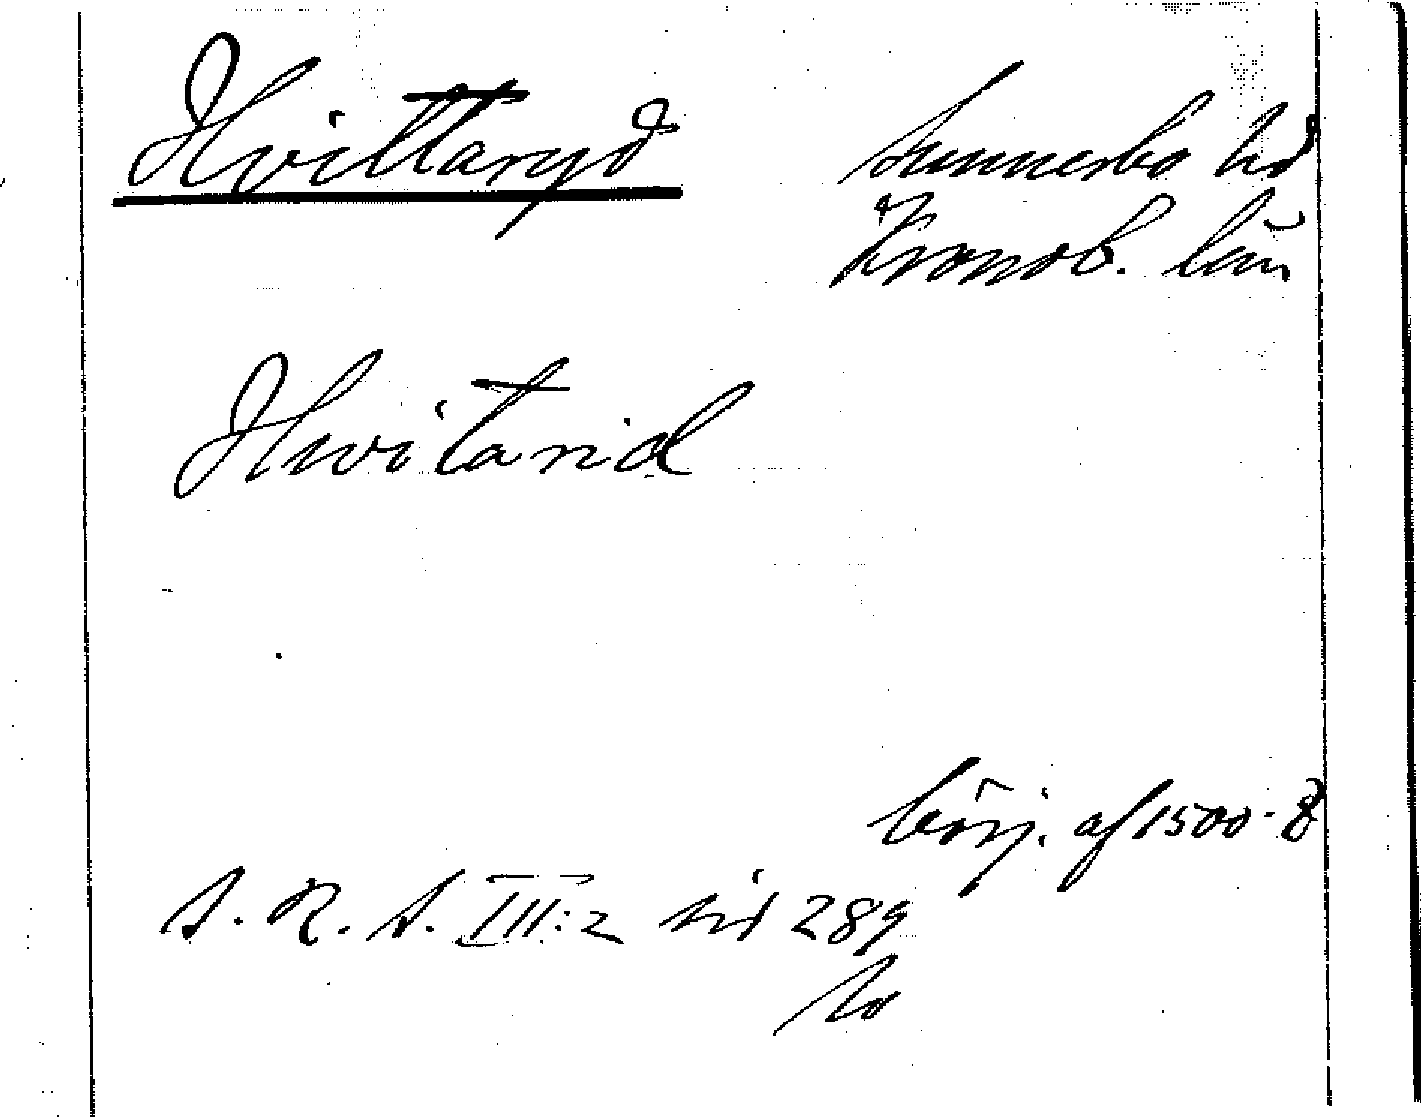 Hvittaryd
Sunnerbo hd
Kronob. län
Hwitarid
börj. af 1500-t
S. R. S. III:2 sid 289